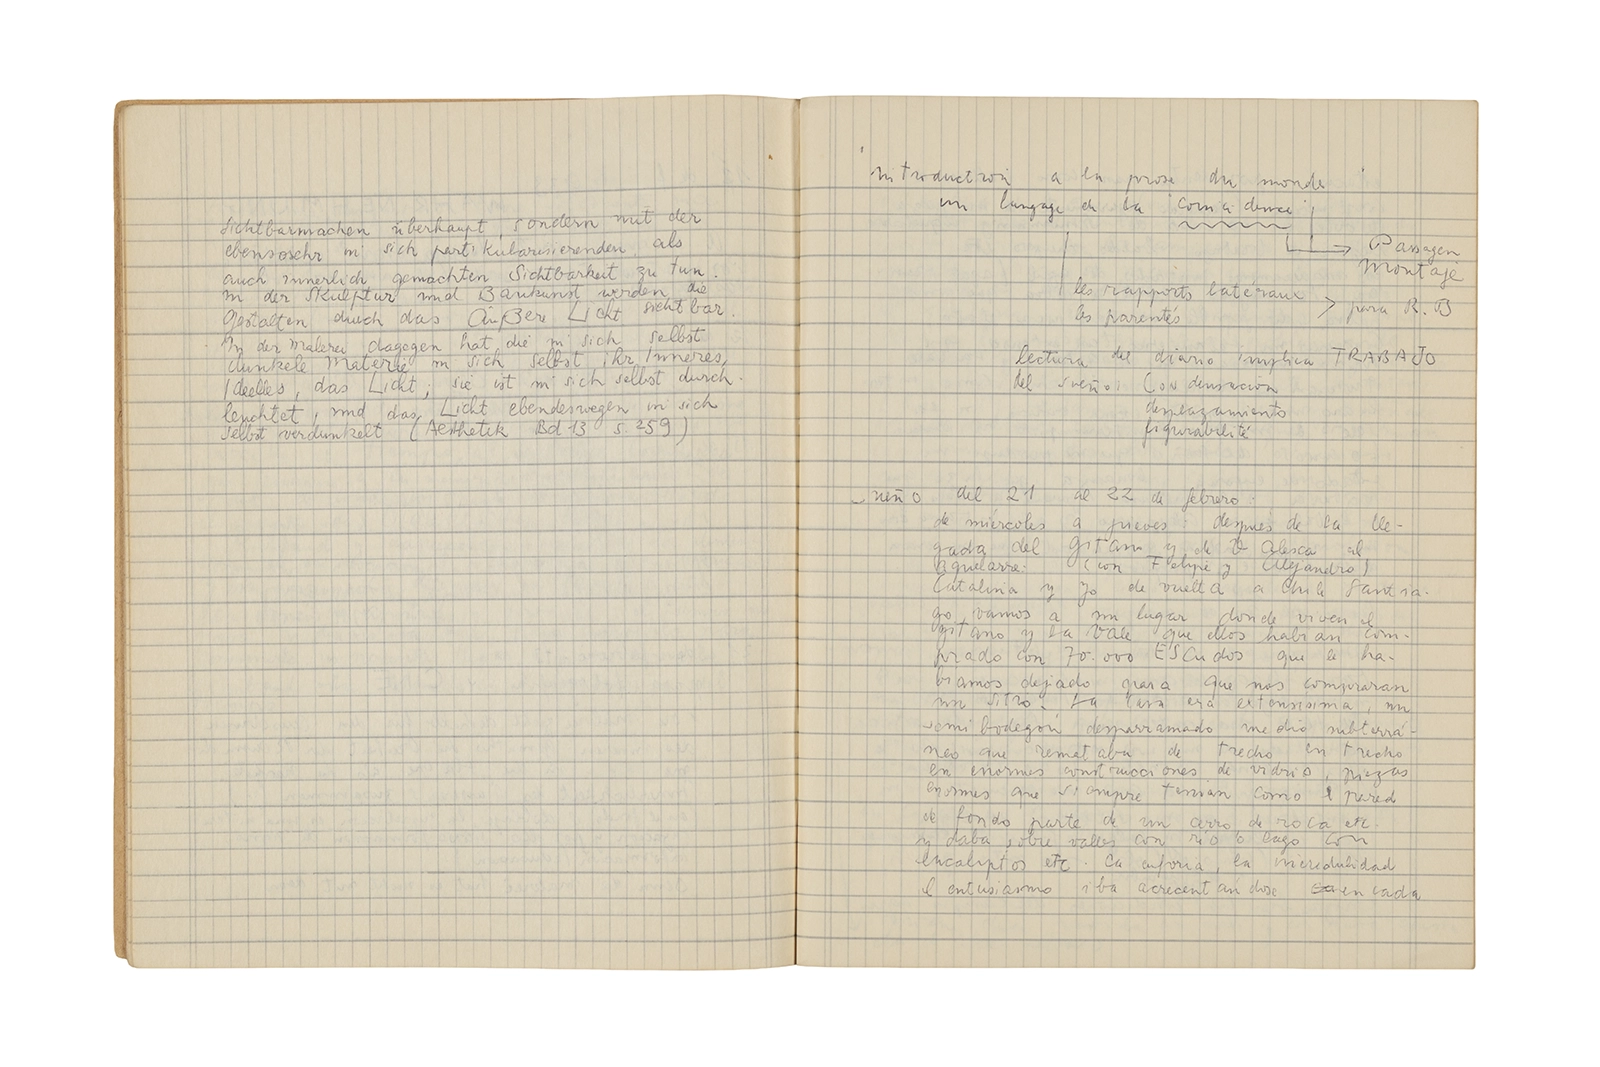 sichtbarmachen überhaupt, sondern mit der
ebensosehr in sich partikularisierenden als
auch innerlich gemachten Sichtbarkeit zu tun.
In der Skulptur und Baukunst werden die
Gestalten durch das äußere Licht sichtbar.
In der Malerei dagegen hat die in sich selbst
dunkele Materie in sich selbst ihr Inneres,
Ideelles, das Licht; sie ist in sich selbst durch-
leuchtet, und das Licht ebendeswegen in sich
selbst verdunkelt (Aesthetik Bd 13 s. 259)
introduction a la prose du monde
un langage de la coincidence
Passagen
Montaje
les rapports lateraux
les parentés
para R. B
lectura del diario implica TRABAJO
del sueño: Condensacion
desplazamiento
figurabilité
sueño del 21 al 22 de febrero.
de miércoles a jueves: después de la lle-
gada del Gitano y de Valesca al
aquelarre. (con Felipe y Alejandro)
Catalina y yo de vuelta a Chile Santia-
go vamos a un lugar donde viven el
gitano y la Vale que ellos habian com-
prado con 70.000 ESCudos que le ha-
biamos dejado para que nos compraran
un sitio. La casa era extensisima, un
semi bodegón desparramado medio subterrá-
neo que remataba de trecho en trecho
en enormes construcciones de vidrio, piezas
enormes que siempre tenian como pared
de fondo parte de un cerro de roca etc.
y daba sobre valles con río o lago con
eucaliptos etc. La euforia, la incredulidad
el entusiasmo iba acrecentandose en cada